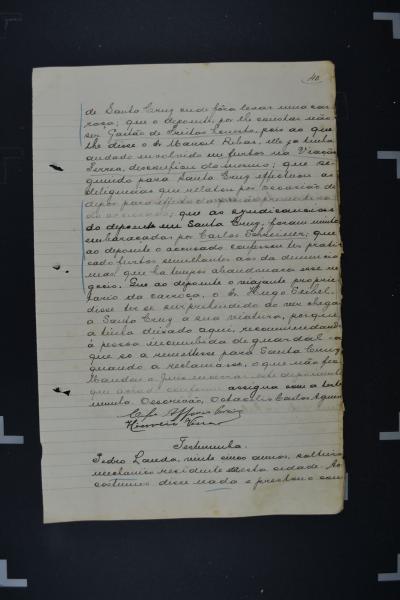 40
de Santo Cruz onde fôra levar uma car
roça; que o depoente, por lhe constar não
ser Gastão de Freitas honesto, pois ao que
lhe disse o Sr Manoel Ribas, elle já tinha
andado envolvido em furtos na Viação
Ferrea, desconfiou do mesmo; que se
guindo para Santa Cruz effectuou as
diligencias que relatou por occasião de
depor para effeito da prisão preventiva
do accusado; que as syndicancias
do depoente em Santa Cruz, foram muito
embaraçadas por Carlos Schreiner; que
ao depoente o accusado confessou ter prati
cado furtos semelhantes aos da denuncia
mas que ha tempos abandonara esse ne
gocio. Que ao depoente o viajante proprie
tario da carroça, o Sr Hugo
disse ter se surprehendido ao ver chegar
a Santa Cruz a sua viatura, porque
a tinha deixado aqui, recommendando
á pessoa incumbida de guardal-a
que só a remettesse para Santa Cruz
quando a reclamasse, o que não fez.
assigna com a teste
munha. Octacilio Carlos
Testemunha.
Pedro Landa, vinte cinco annos, solteiro
mechanico residente nesta cidade. Aos
costumes disse nada e prestou com